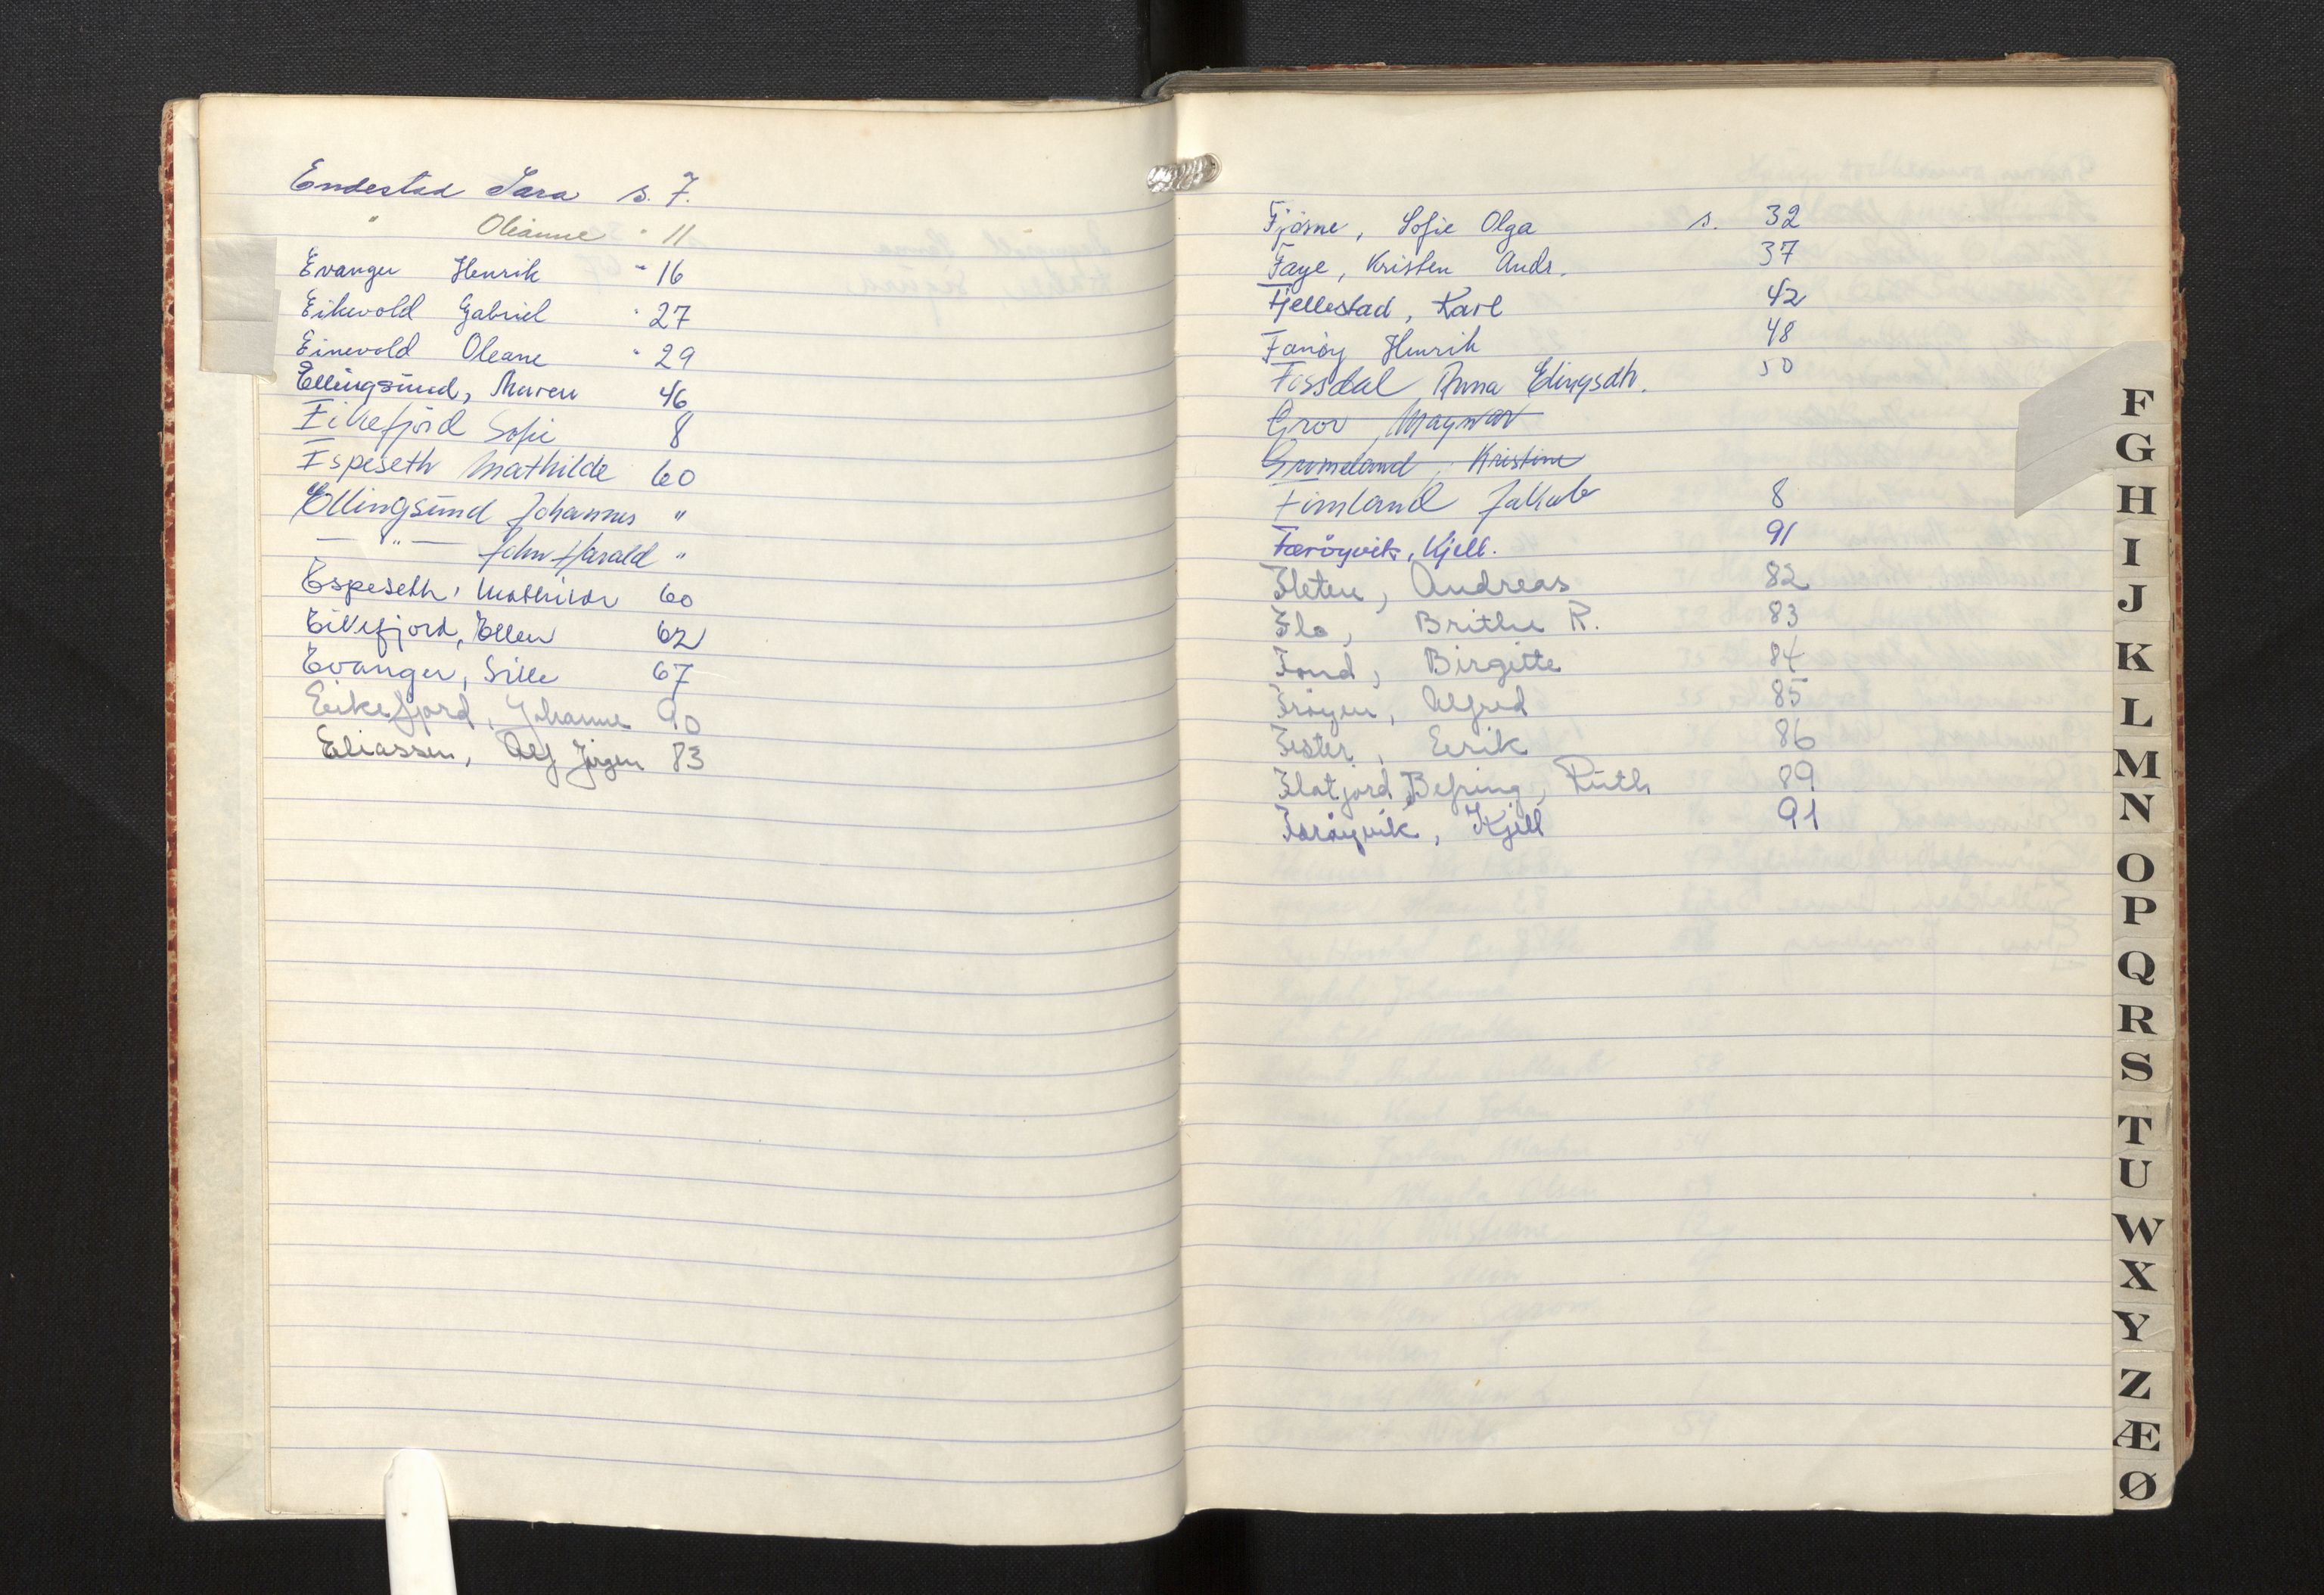 Endestad Sara s. 7.
" Oleanne " 11
Evanger Henrik " 16
Eikevold Gabriel " 27
Einevold Oleane " 29
Ellingsund, Maren 46
Eikefjord Sofie 8
Espeseth Mathilde 60
Ellingsund Johannes "
— " — John Harald "
Espeseth, Mathilde 60
Eikefjord, Ellen 62
Evanger, Sille 67
Eikefjord, Johanne 90
Eliassen, Alf Jørgen 83
Fjørne, Sofie Olga s. 32
Faye, Kristen Andr. 37
Fjellestad, Karl 42
Fanøy Henrik 48
Fossdal Anna Elingsdtr. 50
Grov, Magnar
Grimeland, Kristine
Fimland Jakob 8
Færøyvik, Kjell. 91
Fleten, Andreas 82
Flo, Brithe R. 83
Fond, Birgitte 84
Frøyen, Alfred 85
Fester, Eirik 86
Flatjord Befring, Ruth 89
Færøyvik, Kjell 91
F
G
H
I
J
K
L
M
N
O
P
Q
R
S
T
U
W
X
Y
Z
Æ
Ø